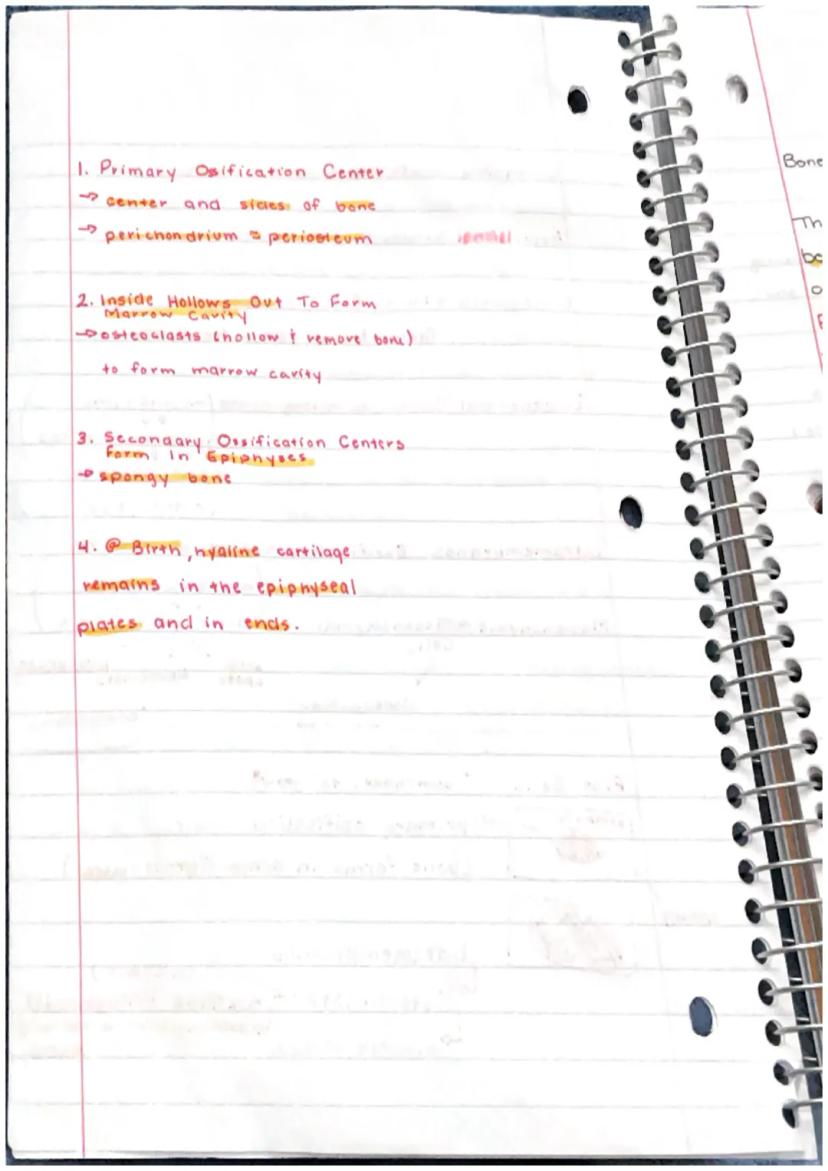 1. Primary Ossification Center
→ center and sides of bone
→ perichondrium = periosteum
2. Inside Hollows Out To Form
Marrow Cavity
→ osteoclasts (hollow & remove bone)
to form marrow cavity
3. Secondary Ossification Centers
Form In Epiphyses
→ spongy bone
4. @ Birth, hyaline cartilage
remains in the epiphyseal
plates and in ends.
Bone
Th